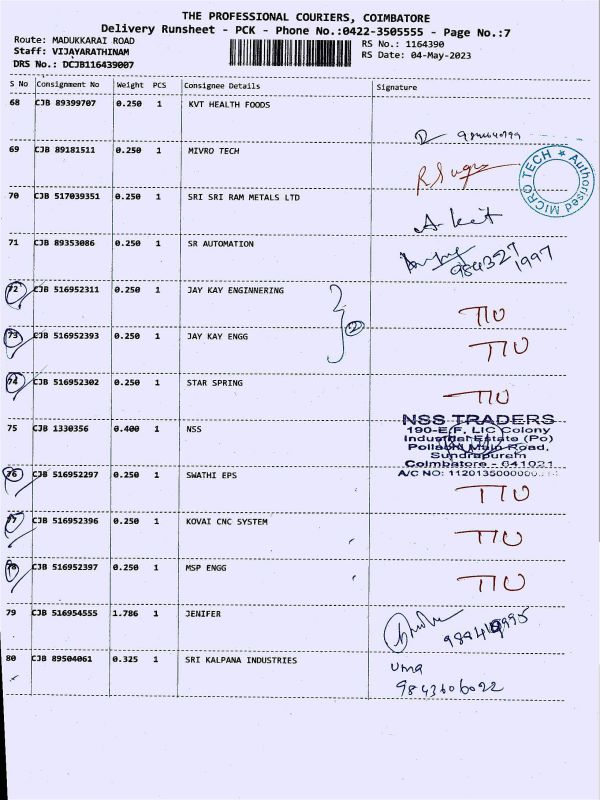 THE PROFESSIONAL COURIERS, COIMBATORE
Delivery Runsheet - PCK - Phone No.:0422-3505555 - Page No.:7
Route: MADUKKARAI ROAD
Staff: VIJAYARATHINAM
DRS No.: DCJB116439007
RS No.: 1164390
RS Date: 04-May-2023
S No Consignment No Weight PCS Consignee Details Signature
68 CJB 89399707 0.250 1 KVT HEALTH FOODS
69 CJB 89181511 0.250 1 MIVRO TECH
MICRO TECH ★ Authorised
70 CJB 517039351 0.250 1 SRI SRI RAM METALS LTD
71 CJB 89353086 0.250 1 SR AUTOMATION
984327 1997
72 CJB 516952311 0.250 1 JAY KAY ENGINNERING
2
73 CJB 516952393 0.250 1 JAY KAY ENGG
74 CJB 516952302 0.250 1 STAR SPRING
75 CJB 1330356 0.400 1 NSS
NSS TRADERS
190-E/F, LIC Colony
Industrial Estate (PO)
Pollachi Main Road,
Sundrapuram
Coimbatore - 641021
A/C NO:
76 CJB 516952297 0.250 1 SWATHI EPS
77 CJB 516952396 0.250 1 KOVAI CNC SYSTEM
78 CJB 516952397 0.250 1 MSP ENGG
79 CJB 516954555 1.786 1 JENIFER
80 CJB 89504061 0.325 1 SRI KALPANA INDUSTRIES
Uma
9843606022